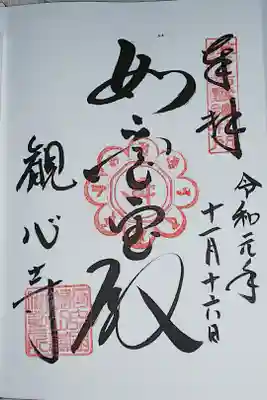 奉拝
令和元年
十一月十六日
如意宝殿
観心寺